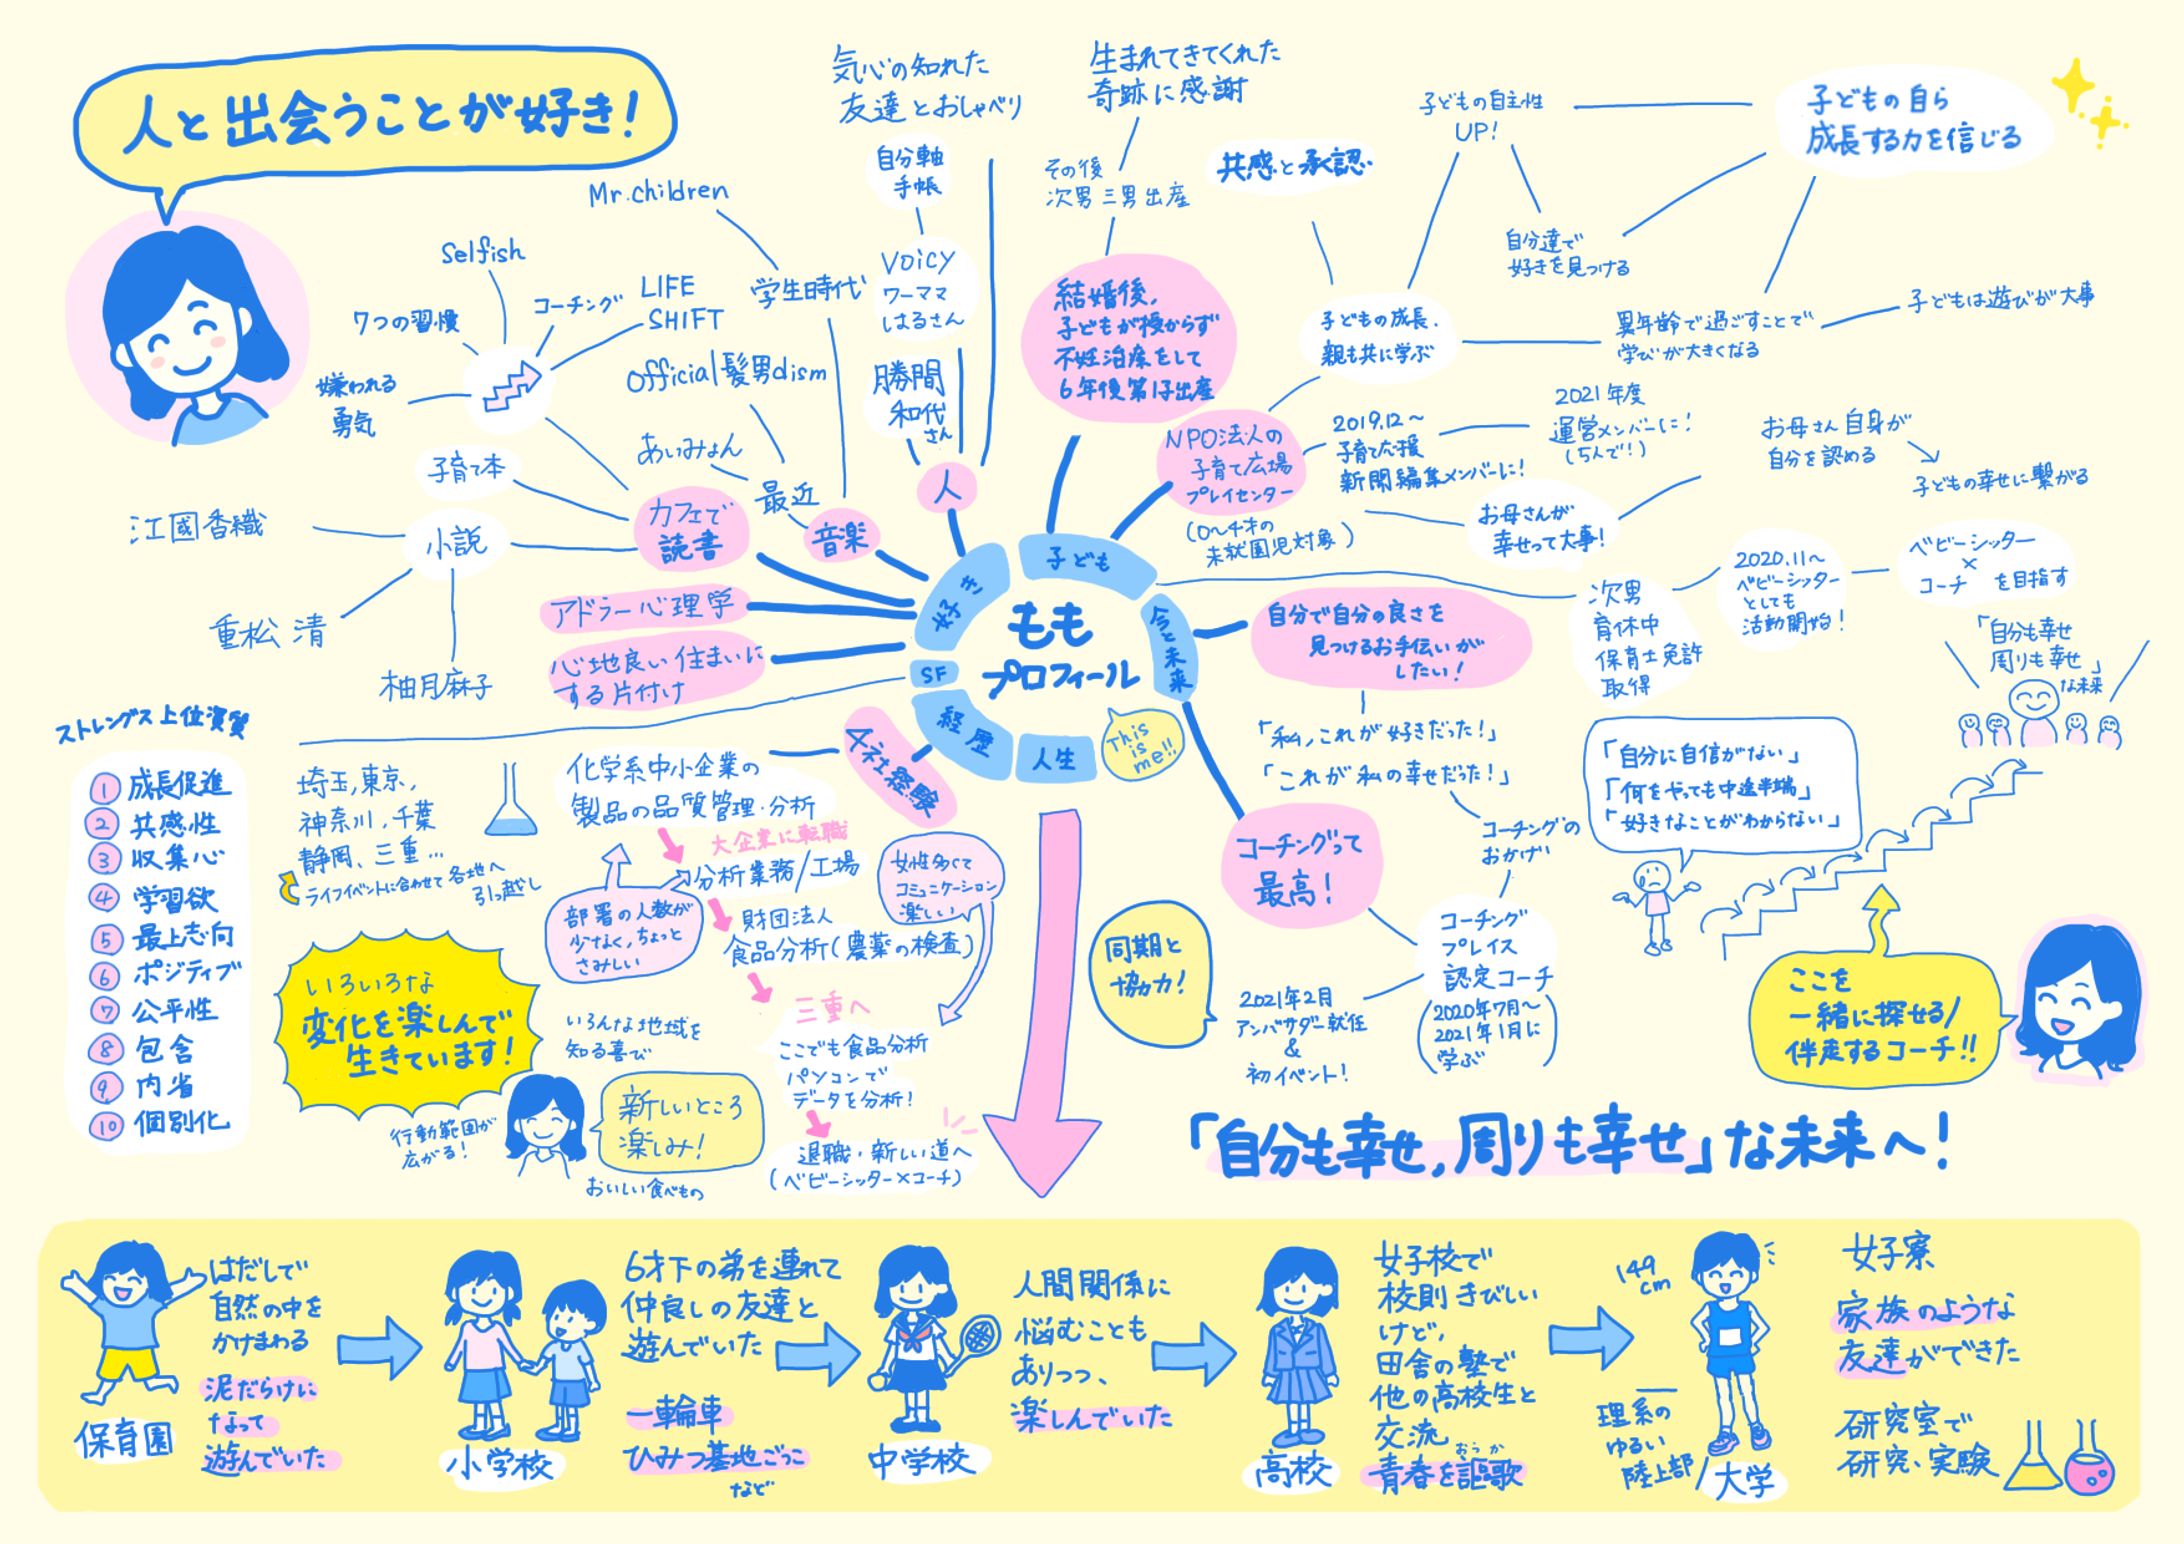 人と出会うことが好き!
気心の知れた
友達とおしゃべり
自分軸
手帳
Voicy
ワーママ
はるさん
勝間
和代
さん
人
生まれてきてくれた
奇跡に感謝
その後
次男三男出産
結婚後,
子どもが授からず
不妊治療をして
6年後第1子出産
共感と承認
子どもの自主性
UP!
子どもの自ら
成長する力を信じる
自分達で
好きを見つける
子どもの成長.
親も共に学ぶ
異年齢で過ごすことで
学びが大きくなる
子どもは遊びが大事
NPO法人の
子育て広場
プレイセンター
(0~4才の
未就園児対象)
2019.12~
子育て応援
新聞編集メンバーに!
2021年度
運営メンバーに!
お母さんが
幸せって大事!
お母さん自身が
自分を認める
子どもの幸せに繋がる
次男
育休中
保育士免許
取得
2020.11~
ベビーシッター
としても
活動開始!
ベビーシッター
×
コーチ を目指す
Mr.children
学生時代
Selfish
7つの習慣
コーチング
LIFE
SHIFT
嫌われる
勇気
Official髭男dism
あいみょん
最近
音楽
子育て本
カフェで
読書
江國香織
小説
重松 清
柚月麻子
アドラー心理学
心地良い住まいに
する片付け
好き
子ども
今と未来
人生
経歴
SF
もも
プロフィール
This
is
me!!
自分で自分の良さを
見つけるお手伝いが
したい!
「私,これが好きだった!」
「これが私の幸せだった!」
コーチングの
おかげ
コーチングって
最高!
コーチング
プレイス
認定コーチ
(2020年7月~
2021年1月に
学ぶ)
2021年2月
アンバサダー就任
&
初イベント!
同期と
協力!
「自分も幸せ
周りも幸せ」
な未来
「自分に自信がない」
「何をやっても中途半端」
「好きなことがわからない」
ここを
一緒に探せる/
伴走するコーチ!!
「自分も幸せ,周りも幸せ」な未来へ!
ストレングス上位資質
1 成長促進
2 共感性
3 収集心
4 学習欲
5 最上志向
6 ポジティブ
7 公平性
8 包含
9 内省
10 個別化
埼玉,東京,
神奈川,千葉
静岡、三重…
ライフイベントに合わせて各地へ
引っ越し
いろいろな
変化を楽しんで
生きています!
行動範囲が
広がる!
いろんな地域を
知る喜び
新しいところ
楽しみ!
おいしい食べもの
4社経験
化学系中小企業の
製品の品質管理・分析
大企業に転職
分析業務/工場
部署の人数が
少なく,ちょっと
さみしい
女性多くて
コミュニケーション
楽しい
財団法人
食品分析(農薬の検査)
三重へ
ここでも食品分析
パソコンで
データを分析!
退職・新しい道へ
(ベビーシッター×コーチ)
保育園
はだしで
自然の中を
かけまわる
泥だらけに
なって
遊んでいた
小学校
6才下の弟を連れて
仲良しの友達と
遊んでいた
一輪車
ひみつ基地ごっこ
など
中学校
人間関係に
悩むことも
ありつつ、
楽しんでいた
高校
女子校で
校則きびしい
けど,
田舎の塾で
他の高校生と
交流
おうか
青春を謳歌
149
cm
理系の
ゆるい
陸上部
大学
女子寮
家族のような
友達ができた
研究室で
研究、実験